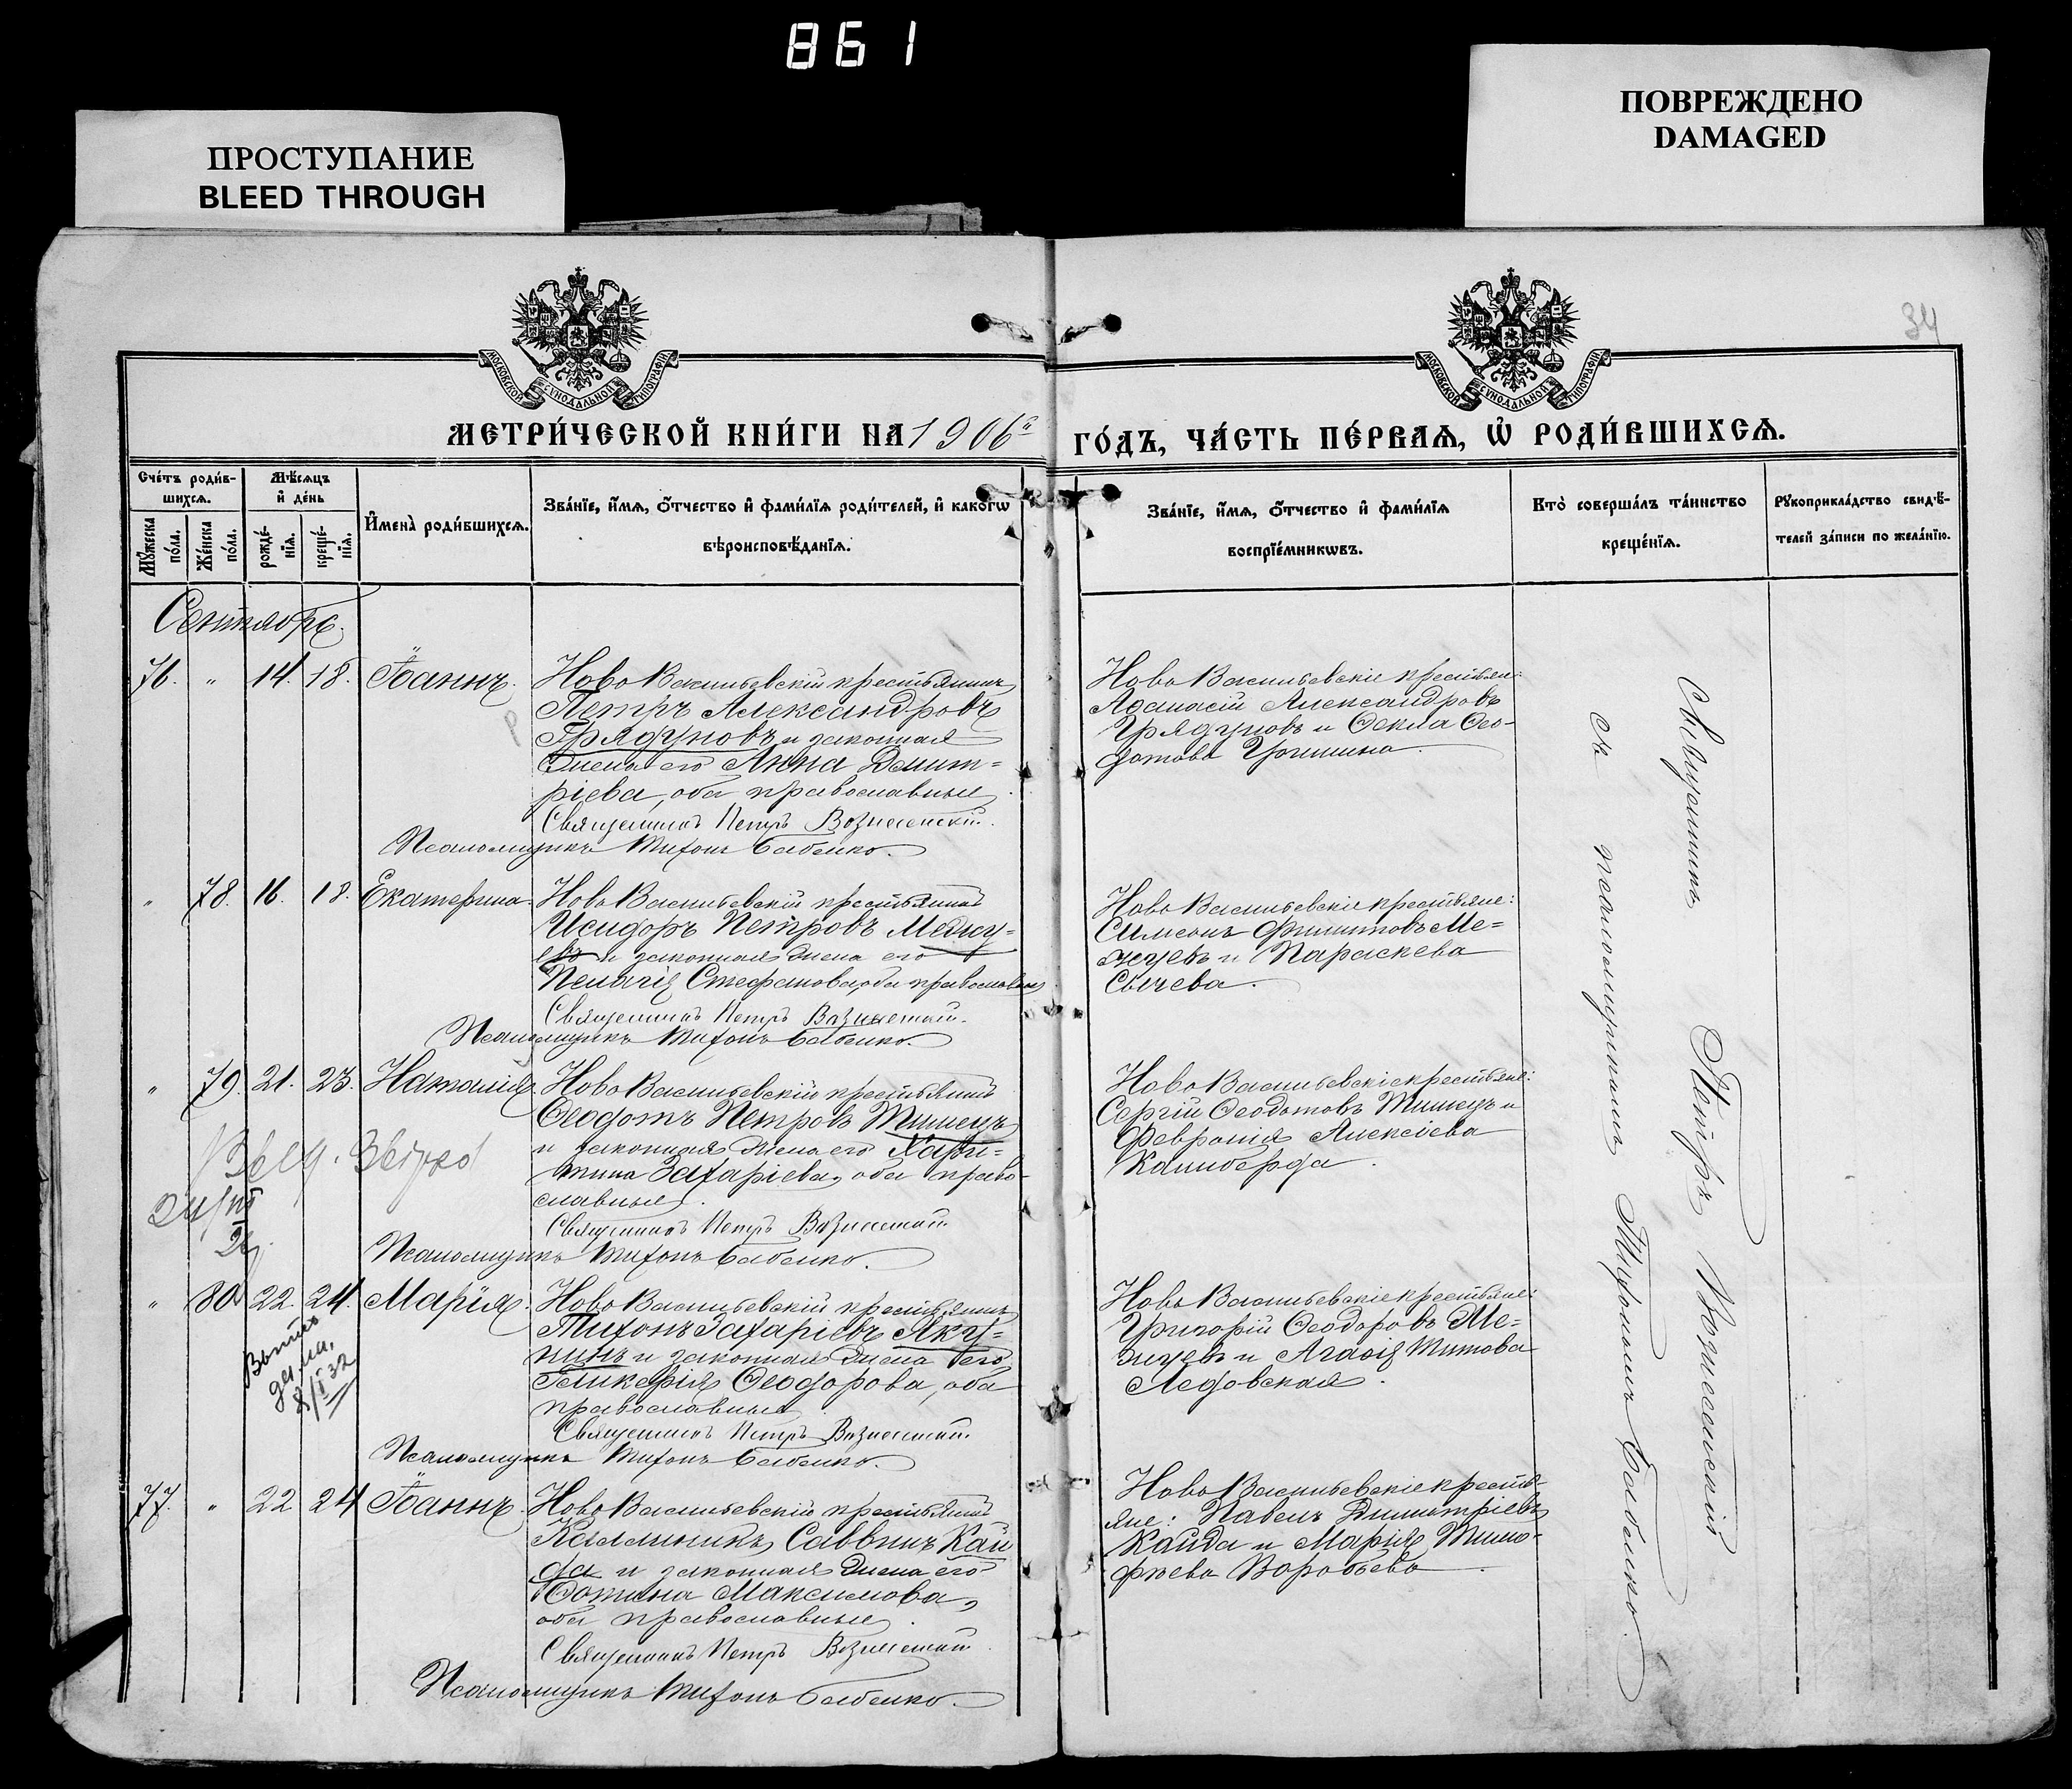 861
ПРОСТУПАНИЕ
BLEED THROUGH
ПОВРЕЖДЕНО
DAMAGED
МОСКОВСКОЙ СѴНОДАЛЬНОЙ ТИПОГРАФІИ
МОСКОВСКОЙ СѴНОДАЛЬНОЙ ТИПОГРАФІИ
34
МЕТРИ́ЧЕСКОЙ КНИ́ГИ НА 1906й
ГО́ДЪ, ЧА́СТЬ ПЕ́РВАѦ, Ѡ҆ РОДИ́ВШИХСѦ.
Сче́тъ роди́в-
шихсѧ.
Мѣ́сѧцъ
и҆ де́нь
Мꙋ́жеска
по́ла.
Же́нска
по́ла.
рожде́-
нїѧ.
креще́-
нїѧ.
И҆мена̀ роди́вшихсѧ.
Зва́нїе, и҆́мѧ, ѻ҆́тчество и҆ фами́лїѧ роди́телей, и҆ како́гѡ
вѣроисповѣ́данїѧ.
Зва́нїе, и҆́мѧ, ѻ҆́тчество и҆ фами́лїѧ
воспрїе́мникѡвъ.
Кто̀ соверша́лъ та́инство
креще́нїѧ.
Рꙋкоприкла́дство свидѣ́-
телей за́писи по жела́нїю.
Сентябрь.
76. " 14. 18. Іоаннъ.
Ново Васильевскій крестьянинъ
Петръ Александровъ
Грядуновъ и законная
жена его Анна Димит=
ріева, оба православные
Священникъ Петръ Вознесенскій.
Псаломщикъ Тихонъ Бабенко.
Ново Васильевскіе крестьяне:
Аѳанасій Александровъ
Грядуновъ и Ѳекла Ѳео-
дотова Гришина.
" 78. 16. 18. Екатерина
Ново Васильевскій крестьянинъ
Исидоръ Петровъ Межу=
евъ и законная жена его
Пелагія Стефанова, оба православные
Священникъ Петръ Вознесенскій.
Псаломщикъ Тихонъ Бабенко.
Ново Васильевскіе крестьяне:
Симеонъ Филиповъ Ме=
жуевъ и Параскева
Сычева.
" 79. 21. 23. Наталія
Ново Васильевскій крестьянинъ
Ѳеодотъ Петровъ Тимецъ
и законная жена его Хари-
тина Захаріева, оба право-
славные.
Священникъ Петръ Вознесенскій.
Псаломщикъ Тихонъ Бабенко.
Ново Васильевскіе крестьяне:
Сергій Ѳеодотовъ Тимецъ и
Февронія Алексіева
Калиберда.
" 80. 22. 24. Марія.
Выпись
8/I 32
Ново Васильевскій крестьянинъ
Тихонъ Захаріевъ Аку=
нинъ и законная жена его
Гликерія Ѳеодорова, оба
православные
Священникъ Петръ Вознесенскій.
Псаломщикъ Тихонъ Бабенко.
Ново Васильевскіе крестьяне:
Григорій Ѳеодоровъ Ме=
жуевъ и Агаѳія Титова
Ледовская.
77. " 22 24 Іоаннъ.
Ново Васильевскій крестьянинъ
Каллиникъ Саввинъ Кай
да и законная жена его
Фотина Максимова,
оба православные.
Священникъ Петръ Вознесенскій
Псаломщикъ Тихонъ Бабенко.
Ново Васильевскіе кресть-
яне: Павелъ Димитріевъ
Кайда и Марія Тимо-
феева Воробьева.
Священникъ Петръ Вознесенскій
съ псаломщикомъ Тихономъ Бабенко.